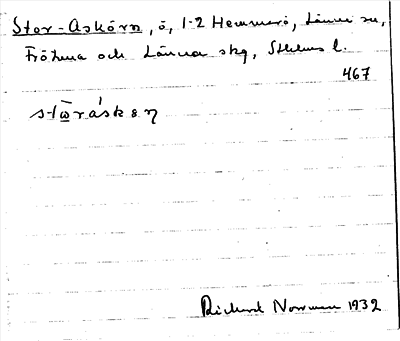 Stor-Askörn, ö, 1-2 Hemmarö, Länna sn,
Frötuna och Länna skg, Sthlms l.
467
stω̄ráskəη
Rickard Norrman 1932